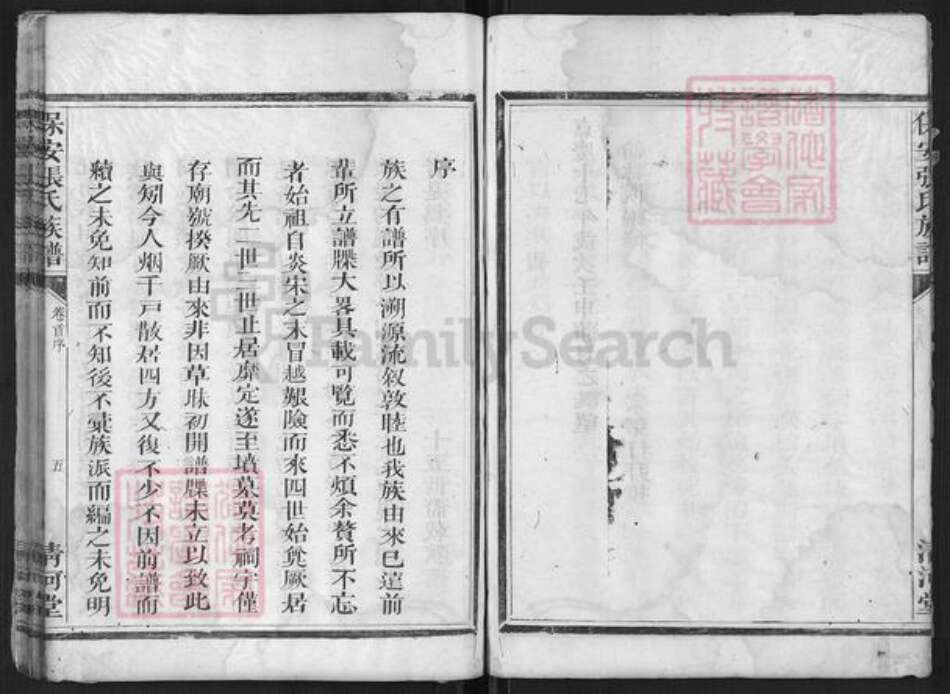 保安張氏族譜
清河堂
序
族之有譜所以溯源流叙敦睦也我族由來已遠前
輩所立譜牒大畧具載可覧而悉不煩余贅所不忘
者始祖自炎宋之末冒越艱險而來四世始奠厥居
而其先二世三世止居靡定遂至墳墓莫考祠宇僅
存廟號揆厥由來非因草昧初開譜牒未立以致此
與矧今人烟千戸散居四方又復不少不因前譜而
續之未免知前而不知後不彙族派而編之未免明
保安張氏族譜
卷首序
五
清河堂
FamilySearch